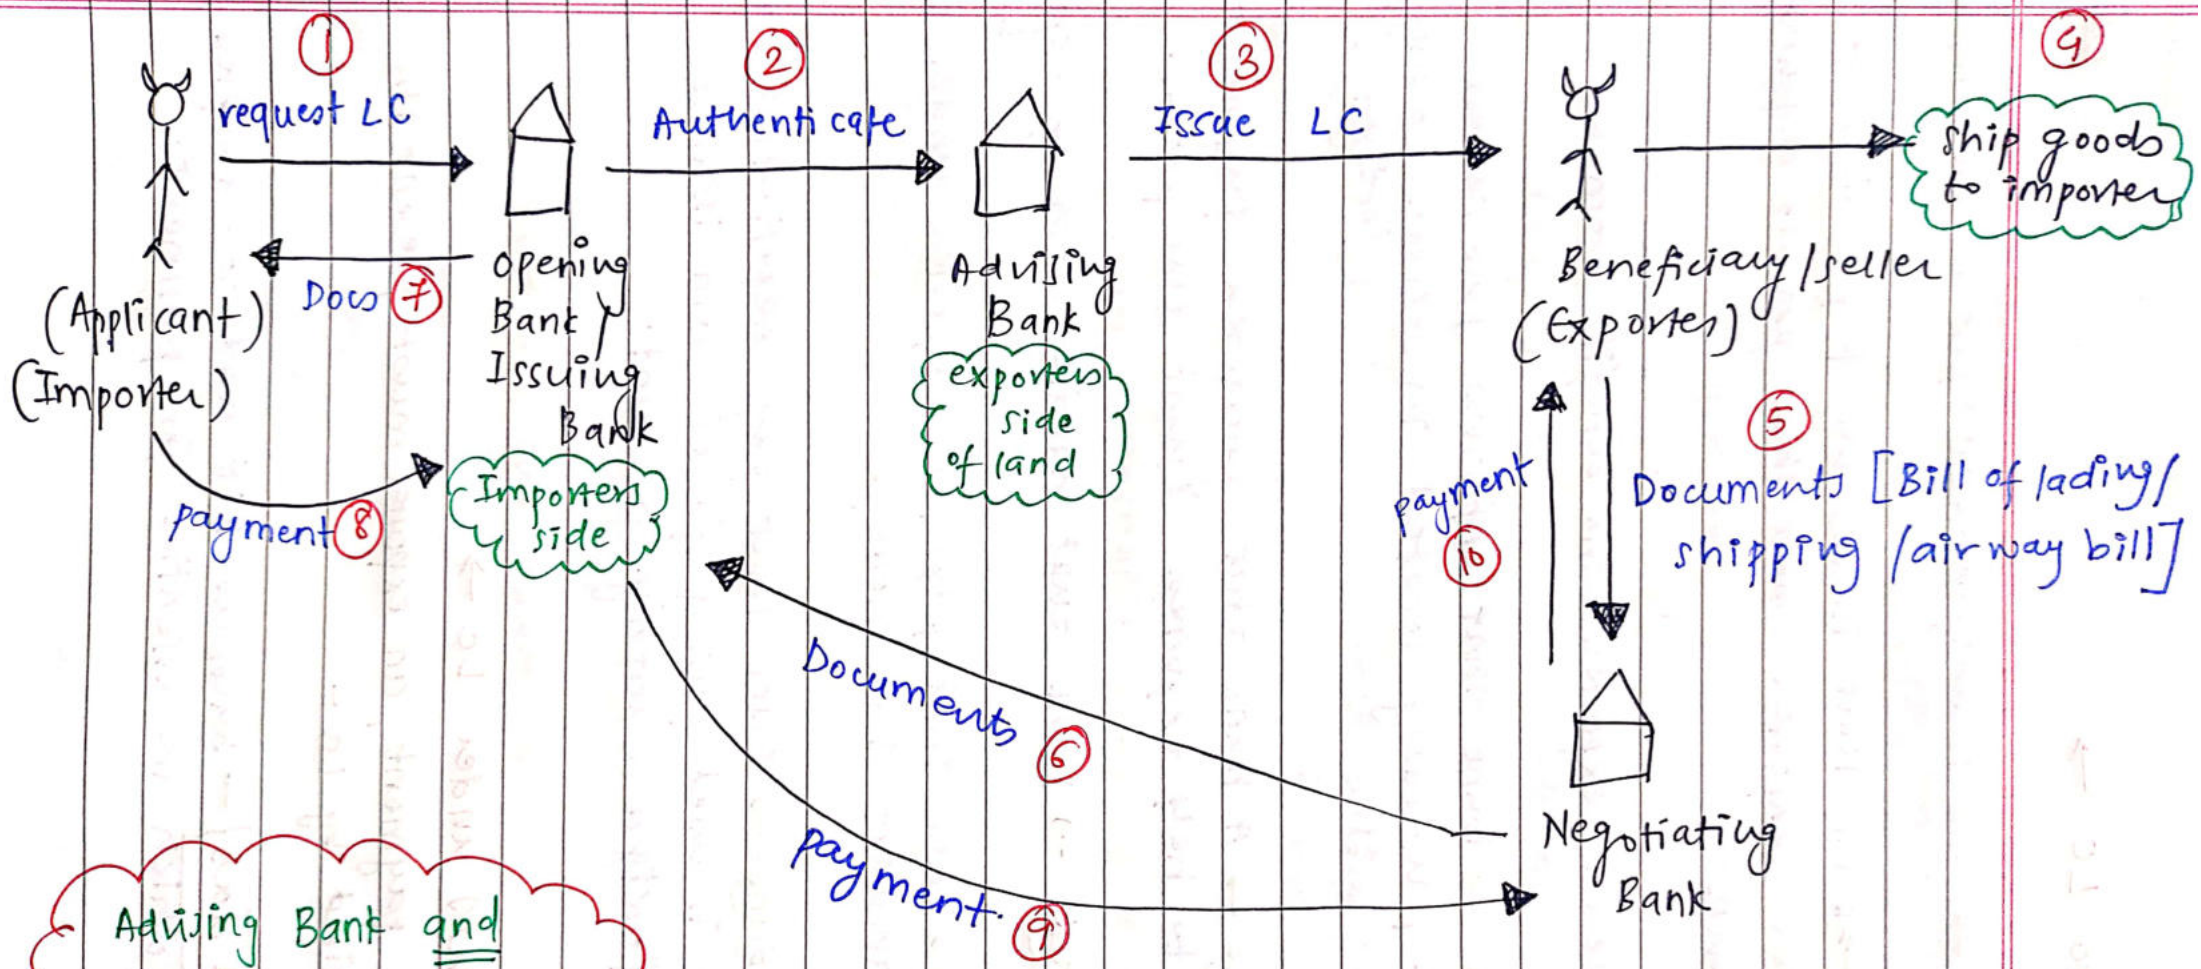 ①
②
③
④
request LC
Authenticate
Issue LC
ship goods
to importer
Docs ⑦
(Applicant)
(Importer)
payment ⑧
Opening
Bank /
Issuing
Bank
Importers
side
Advising
Bank
exporters
side
of land
Beneficiary/seller
(Exporter)
payment
⑩
⑤
Documents [Bill of lading/
shipping /airway bill]
Documents ⑥
payment. ⑨
Negotiating
Bank
Advising Bank and